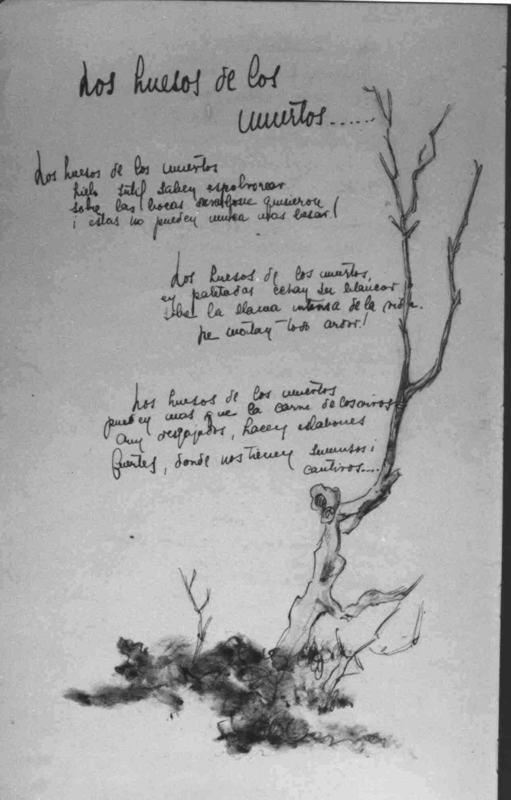 Los huesos de los
muertos......
Los huesos de los muertos
hielo sutil saben espolvorear
sobre las bocas de los que quisieron
¡ estas no pueden nunca mas besar!
Los huesos de los muertos,
en paletadas echan su blancor
sobre la llama intensa de la vida.
¡le matan todo ardor!
Los huesos de los muertos
pueden mas que la carne de los vivos
Aun desgajados, hacen eslabones
fuertes, donde nos tienen sumisos i
cautivos....